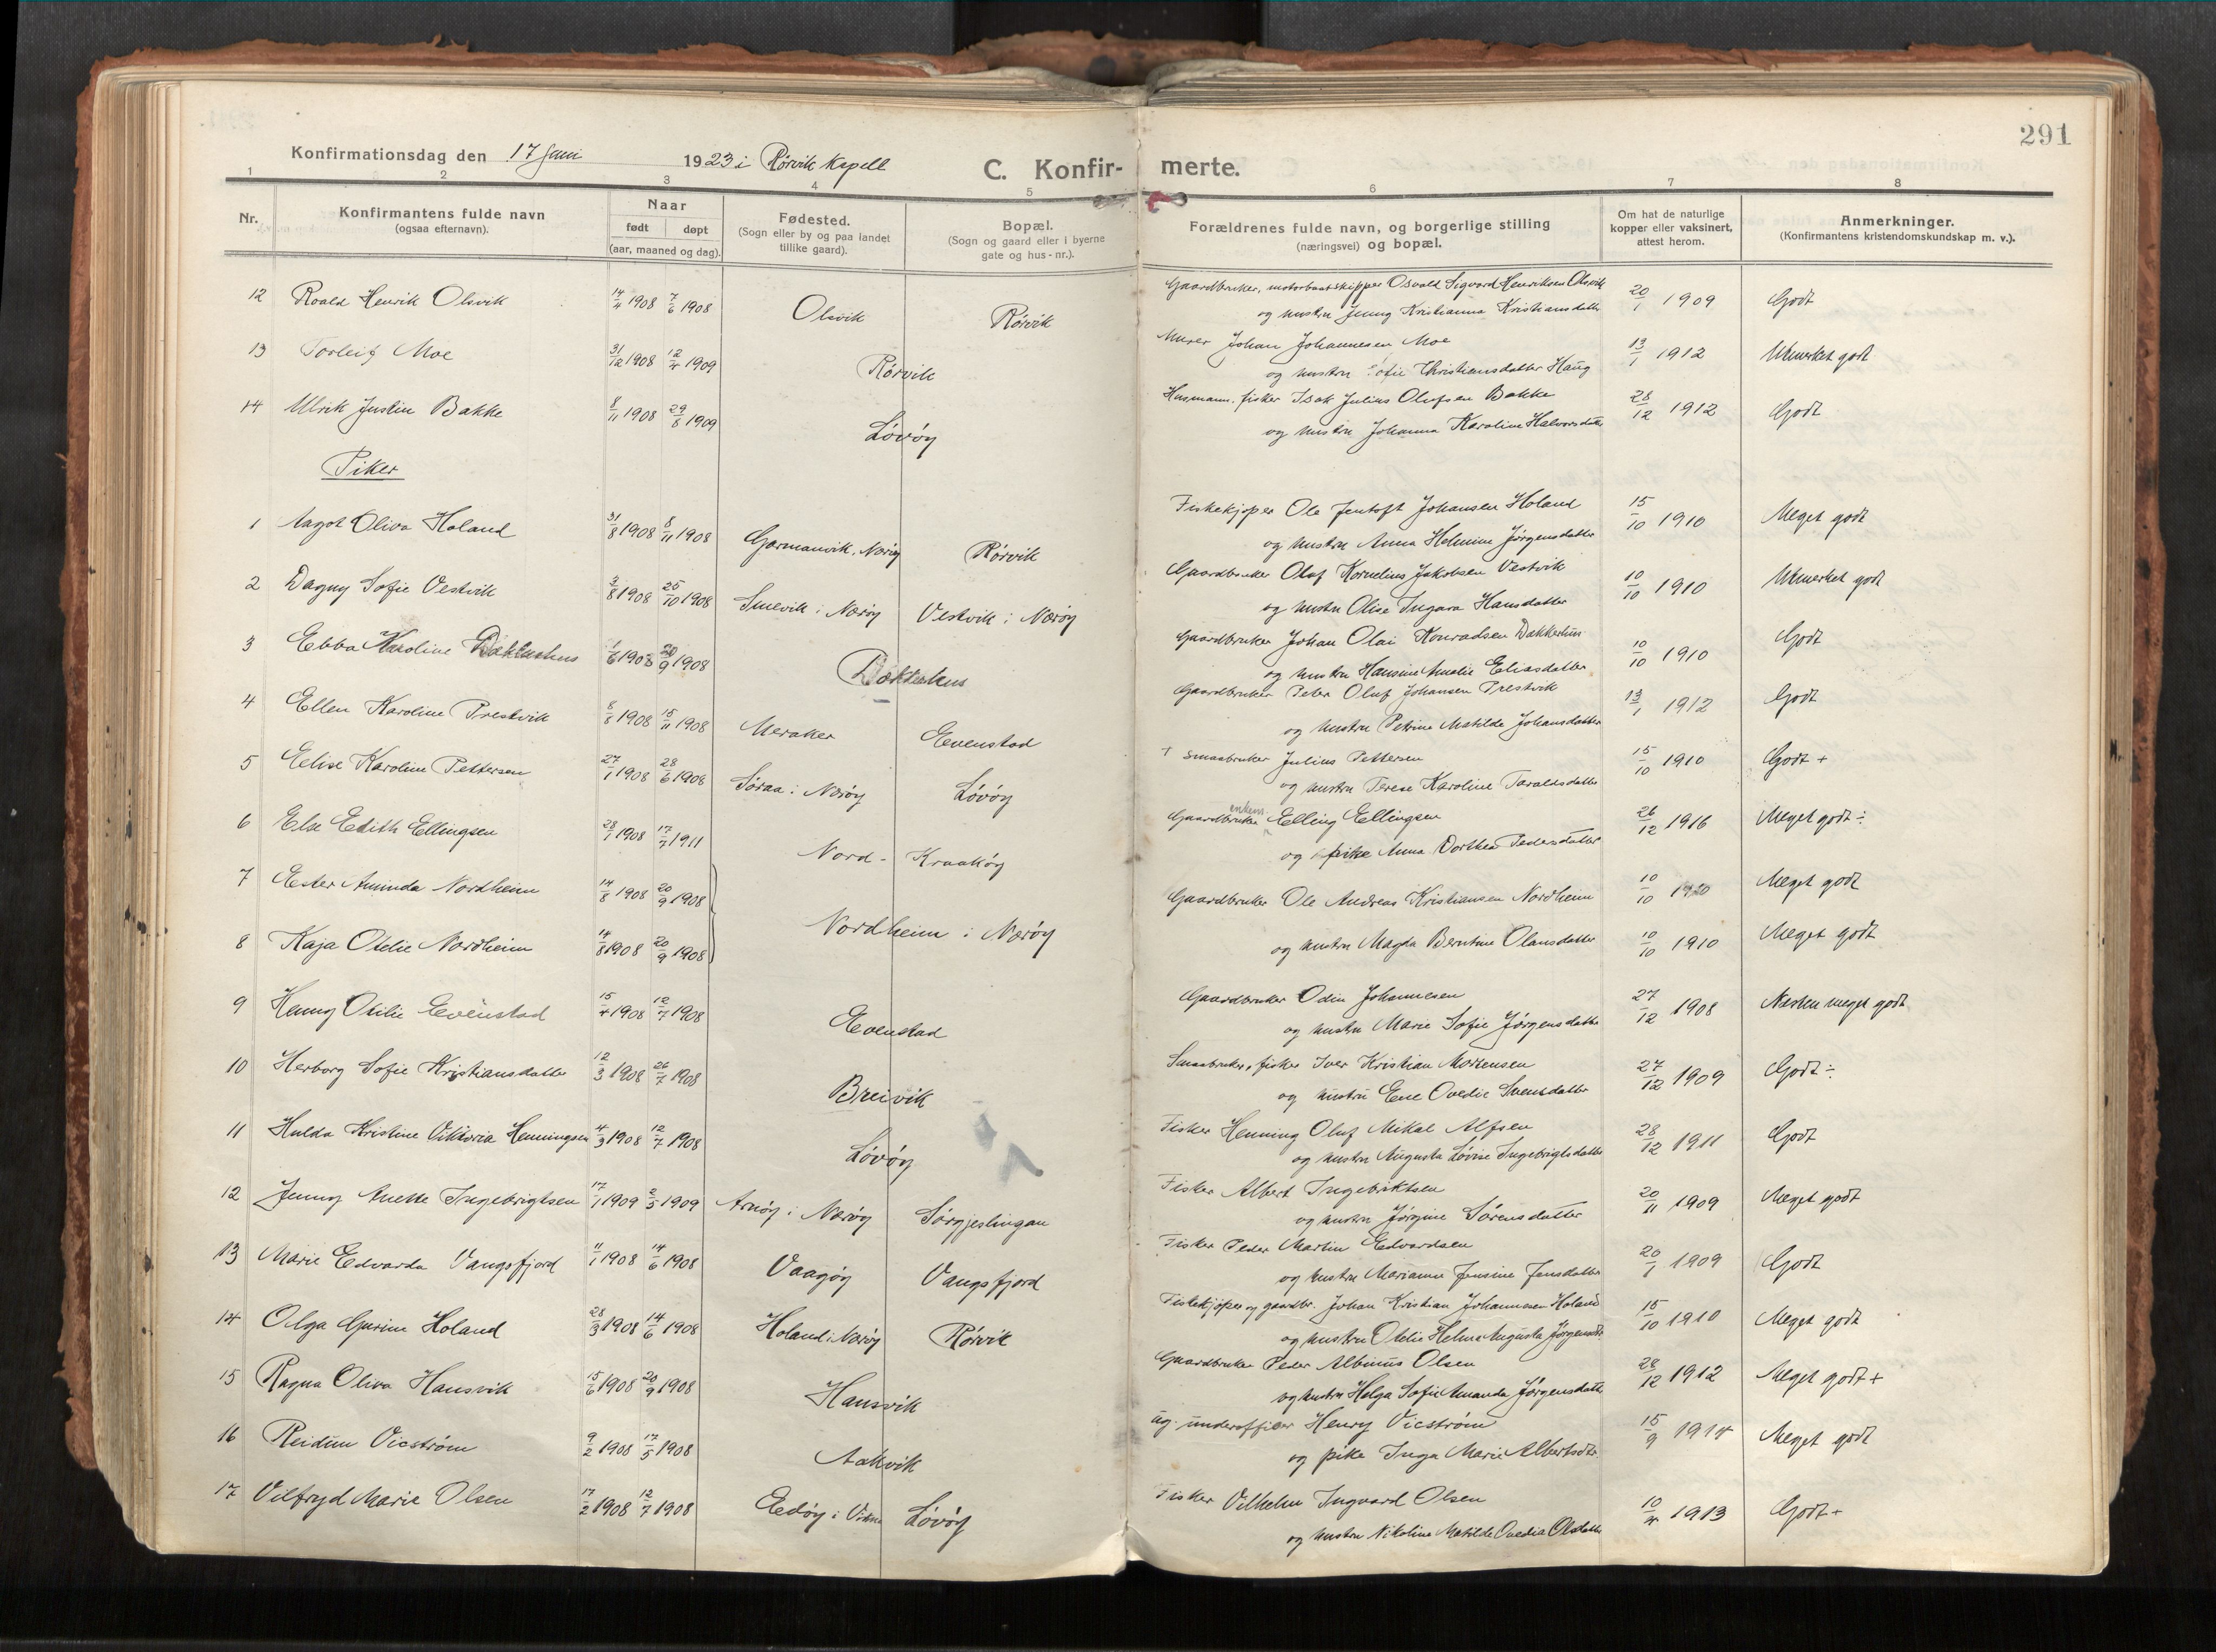 291
Konfirmationsdag den 17 Juni 1923 i Rørvik kapell
C. Konfir- merte.
1 2 3 4 5 6 7 8
Nr.
Konfirmantens fulde navn
(ogsaa efternavn).
Naar
født døpt
(aar, maaned og dag).
Fødested.
(Sogn eller by og paa landet
tillike gaard).
Bopæl.
(Sogn og gaard eller i byerne
gate og hus-nr.).
Forældrenes fulde navn, og borgerlige stilling
(næringsvei) og bopæl.
Om hat de naturlige
kopper eller vaksinert,
attest herom.
Anmerkninger.
(Konfirmantens kristendomskundskap m. v.).
12 Roald Henrik Olsvik 14/4 1908 7/6 1908 Olsvik Rørvik Gaardbruker, motorbaatskipper Osvald Sigvard Henriksen Olsvik 20/1 1909 Godt
og hustru Jenny Kristianna Kristiansdatter
13 Torleif Moe 31/12 1908 12/4 1909 Rørvik Murer Johan Johannesen Moe 13/1 1912 Utmerket godt
og hustru Sofie Christiansdatter Haug
14 Ulrik Justin Bakke 8/11 1908 29/8 1909 Løvøy Husmann, fisker Isak Julius Olufsen Bakke 28/12 1912 Godt
og hustru Johanna Karoline Halvorsdatter
Piker
1 Aagot Oliva Holand 31/8 1908 8/11 1908 Garmanvik, Nærøy Rørvik Fiskekjøper Ole Jentoft Johansen Holand 15/10 1910 Meget godt
og hustru Anna Helmine Jørgensdatter
2 Dagny Sofie Vestvik 3/8 1908 25/10 1908 Smevik i Nærøy Vestvik i Nærøy Gaardbruker Olaf Kornelius Jakobsen Vestvik 10/10 1910 Utmerket godt
og hustru Olise Ingara Hansdatter
3 Ebba Karoline Dakkerhus 1/6 1908 20/9 1908 Dakkerhus Gaardbruker Johan Olai Konradsen Dakkerhus 10/10 1910 Godt
og hustru Hansine Amalie Eliasdatter
4 Ellen Karoline Prestvik 8/8 1908 15/11 1908 Meraker Evenstad Gaardbruker Peter Oluf Johansen Prestvik 13/1 1912 Godt
og hustru Petrine Matilde Johansdatter
5 Elise Karoline Pettersen 27/1 1908 28/6 1908 Søraa i Nærøy Løvøy + Smaabruker Julius Pettersen 15/10 1910 Godt +
og hustru Terese Karoline Taraldsdatter
6 Else Edith Ellingsen 28/1 1908 17/7 1911 Nord-Kraakøy Gaardbruker enkem. Elling Ellingsen 26/12 1916 Meget godt ÷
og pike Anna Dorthea Pedersdatter
7 Ester Aminda Nordheim 14/8 1908 20/9 1908 Nordheim i Nærøy Gaardbruker Ole Andreas Kristiansen Nordheim 10/10 1920 Meget godt
8 Kaja Otelie Nordheim 14/8 1908 20/9 1908 og hustru Magda Berntine Olausdatter 10/10 1910 Meget godt
9 Henny Otilie Evenstad 15/4 1908 12/7 1908 Evenstad Gaardbruker Odin Johannesen 27/12 1908 Næsten meget godt
og hustru Marie Sofie Jørgensdatter
10 Herborg Sofie Kristiansdatter 12/3 1908 26/7 1908 Breivik Smaabruker, fisker Iver Kristian Mortensen 27/12 1909 Godt ÷
og hustru Ene Ovedie Svensdatter
11 Hulda Kristine Viktoria Henningsen 4/3 1908 12/7 1908 Løvøy Fisker Henning Oluf Mikal Alfsen 28/12 1911 Godt
og hustru Augusta Lovise Ingebrigtsdatter
12 Jenny Anette Ingebrigtsen 17/1 1909 2/5 1909 Arnøy i Nærøy Sørgjeslingan Fisker Albert Ingebriktsen 20/11 1909 Meget godt
og hustru Jørgine Sørensdatter
13 Marie Edvarda Vangsfjord 11/1 1908 14/6 1908 Vaagøy Vangsfjord Fisker Peder Martin Edvardsen 20/1 1909 Godt
og hustru Marianne Jensine Jensdatter
14 Olga Gurine Holand 28/3 1908 14/6 1908 Holand i Nærøy Rørvik Fiskekjøper og gaardbr. Johan Kristian Johannesen Holand 15/10 1910 Meget godt
og hustru Otelie Helma Augusta Jørgensdtr.
15 Ragna Oliva Hansvik 15/6 1908 20/9 1908 Hansvik Gaardbruker Peder Albinus Olsen 28/12 1912 Meget godt +
og hustru Helga Sofie Amanda Jørgensdatter
16 Reidun Vicstrøm 9/2 1908 17/5 1908 Aakvik Ug. underoffiser Henry Vicstrøm 15/9 1914 Meget godt
og pike Inga Marie Albertsdtr.
17 Vilfryd Marie Olsen 17/2 1908 12/7 1908 Eedøy i Vikna Løvøy Fisker Vilhelm Ingvard Olsen 10/4 1913 Godt +
og hustru Nikoline Matilde Ovedia Olsdatter